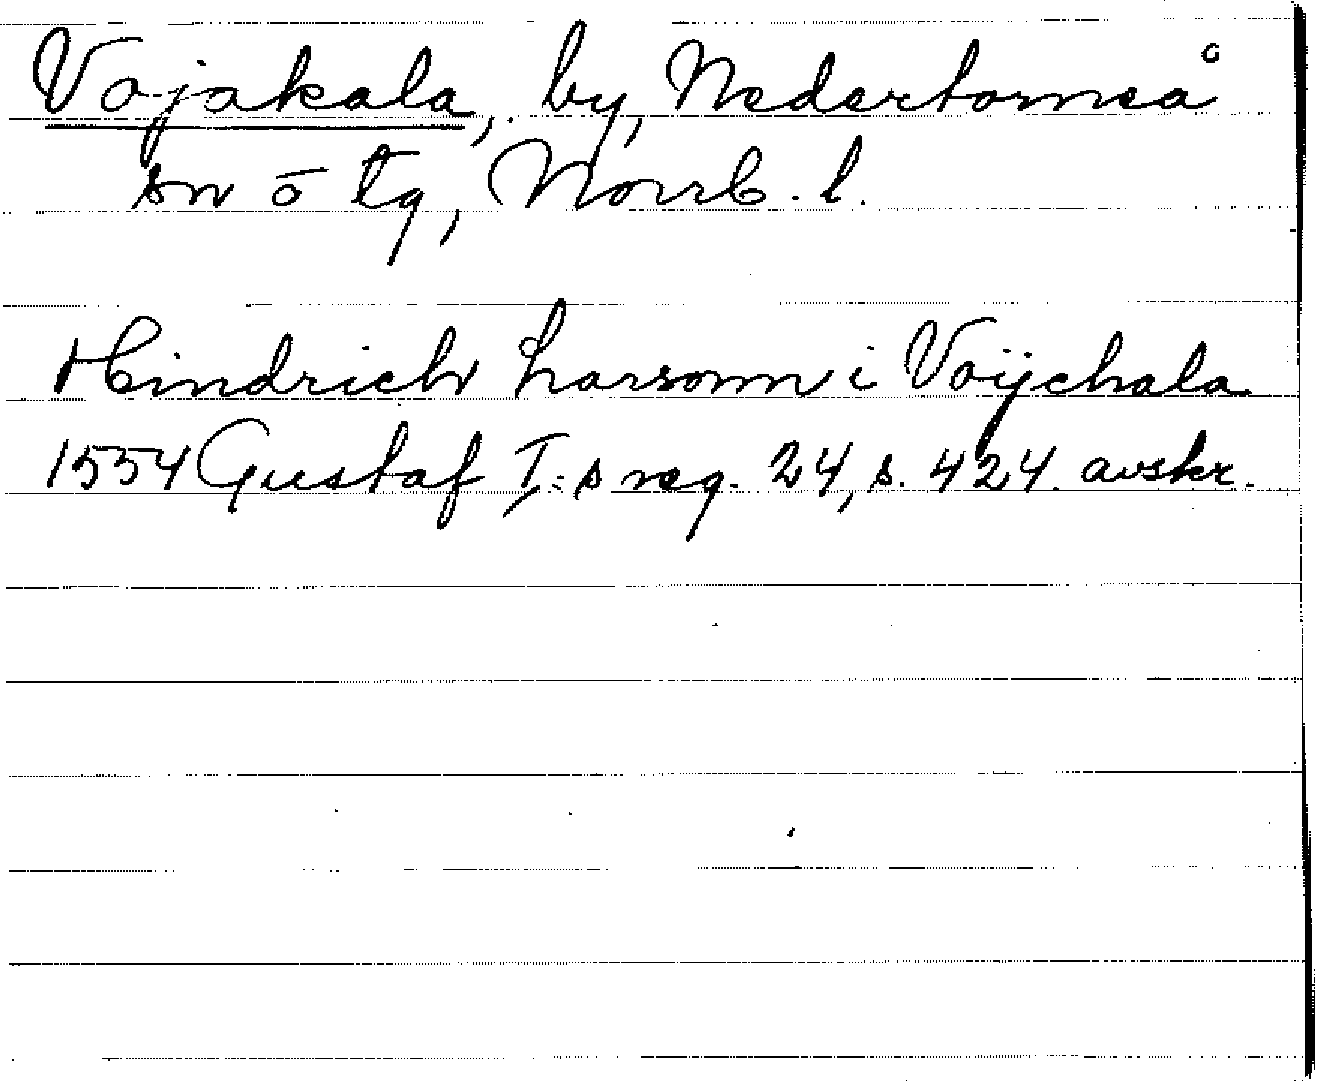 Vojakala, by, Nedertorneå
sn o tg, Norrb. l.
Hindrich Larsonn i Voijchala
1554 Gustaf I:s reg. 24, s. 424. avskr.